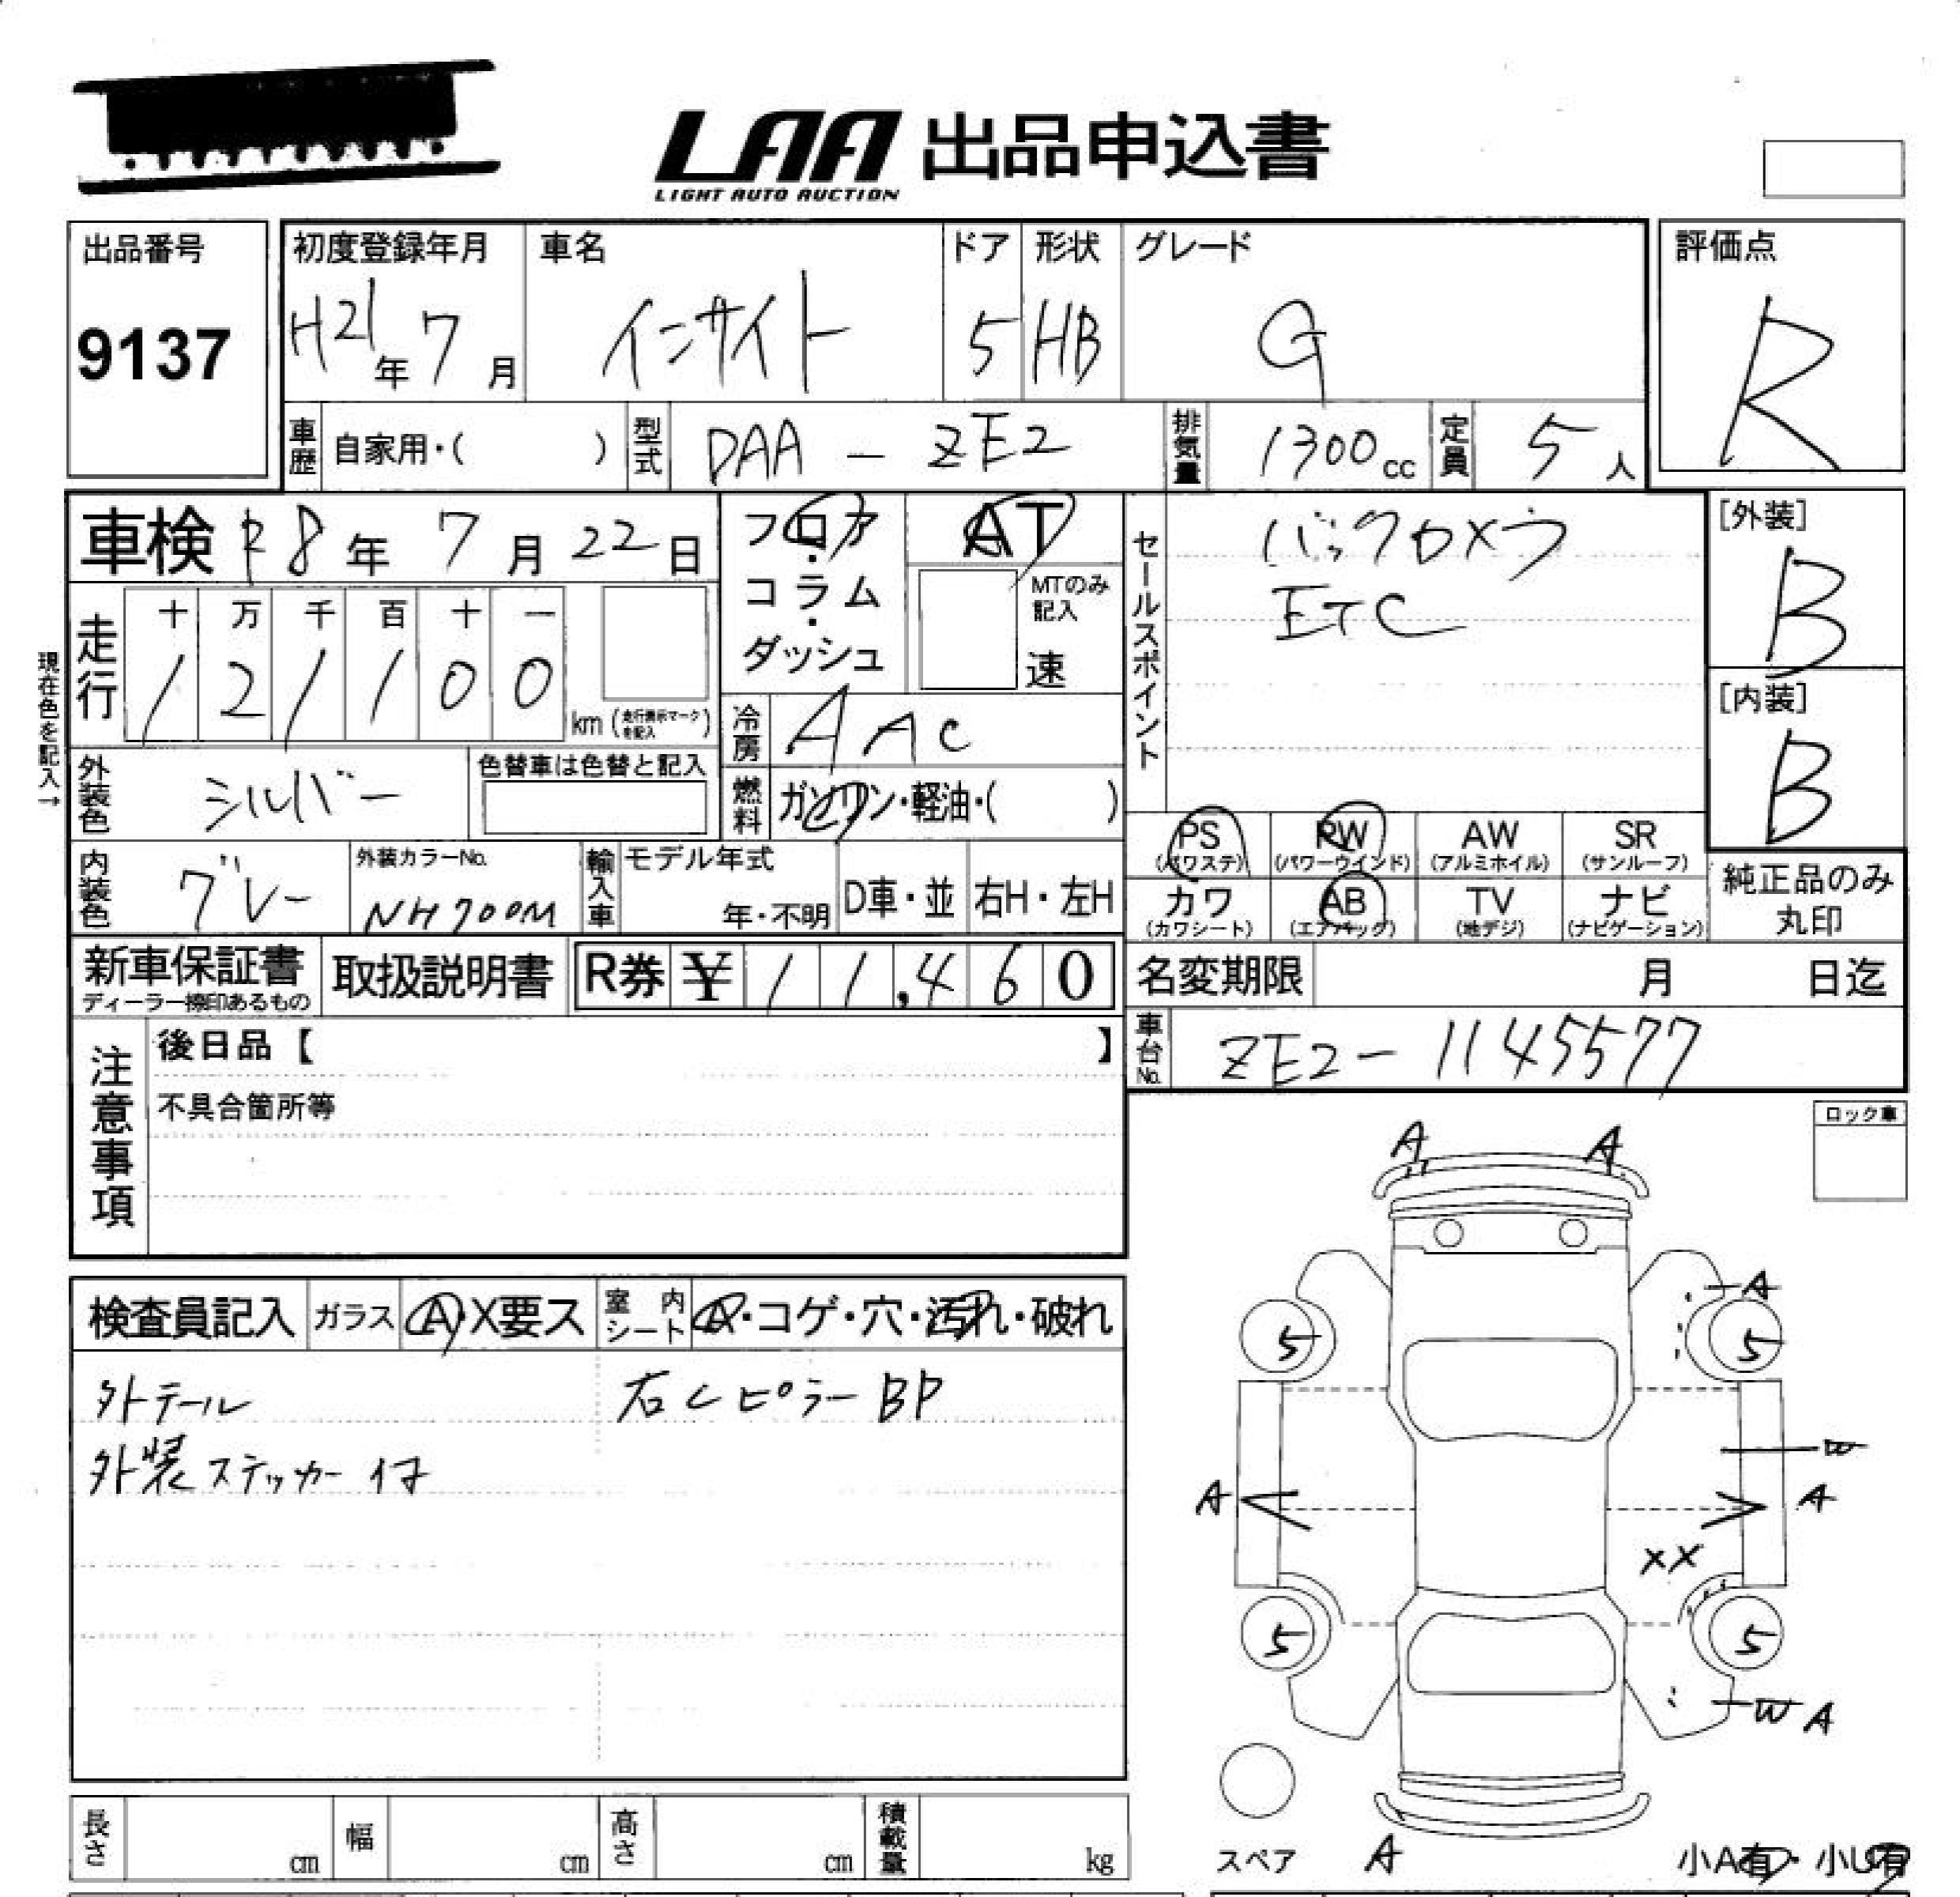 LAA 出品申込書
LIGHT AUTO AUCTION
出品番号
9137
初度登録年月
H21年 7月
車名
インサイト
ドア
5
形状
HB
グレード
G
評価点
R
車歴 自家用・( )
型式 DAA - ZE2
排気量 1300cc
定員 5人
車検 R8年 7月 22日
フロア・コラム・ダッシュ
AT
MTのみ記入
速
セールスポイント
バックカメラ
ETC
[外装]
B
[内装]
B
現在色を記入→
走行
十 万 千 百 十 一
1 2 1 1 0 0 km (走行表示マークを記入)
冷房 AAC
外装色 シルバー
色替車は色替と記入
燃料 ガソリン・軽油・( )
PS (パワステ)
PW (パワーウインド)
AW (アルミホイル)
SR (サンルーフ)
カワ (カワシート)
AB (エアバッグ)
TV (地デジ)
ナビ (ナビゲーション)
純正品のみ丸印
内装色 グレー
外装カラーNo.
NH700M
輸入車
モデル年式
年・不明
D車・並
右H・左H
新車保証書
ディーラー捺印あるもの
取扱説明書
R券 ¥ 11,460
名変期限 月 日迄
車台No. ZE2-1145577
注意事項
後日品【 】
不具合箇所等
ロック車
検査員記入
ガラス A・X要ス
室内シート A・コゲ・穴・汚れ・破れ
外テール
右Cピラー BP
外装ステッカー付
A A
A
5 5
W
A A
XX
5 5
W A
スペア
A
小A有・小U有
長さ cm
幅 cm
高さ cm
積載量 kg